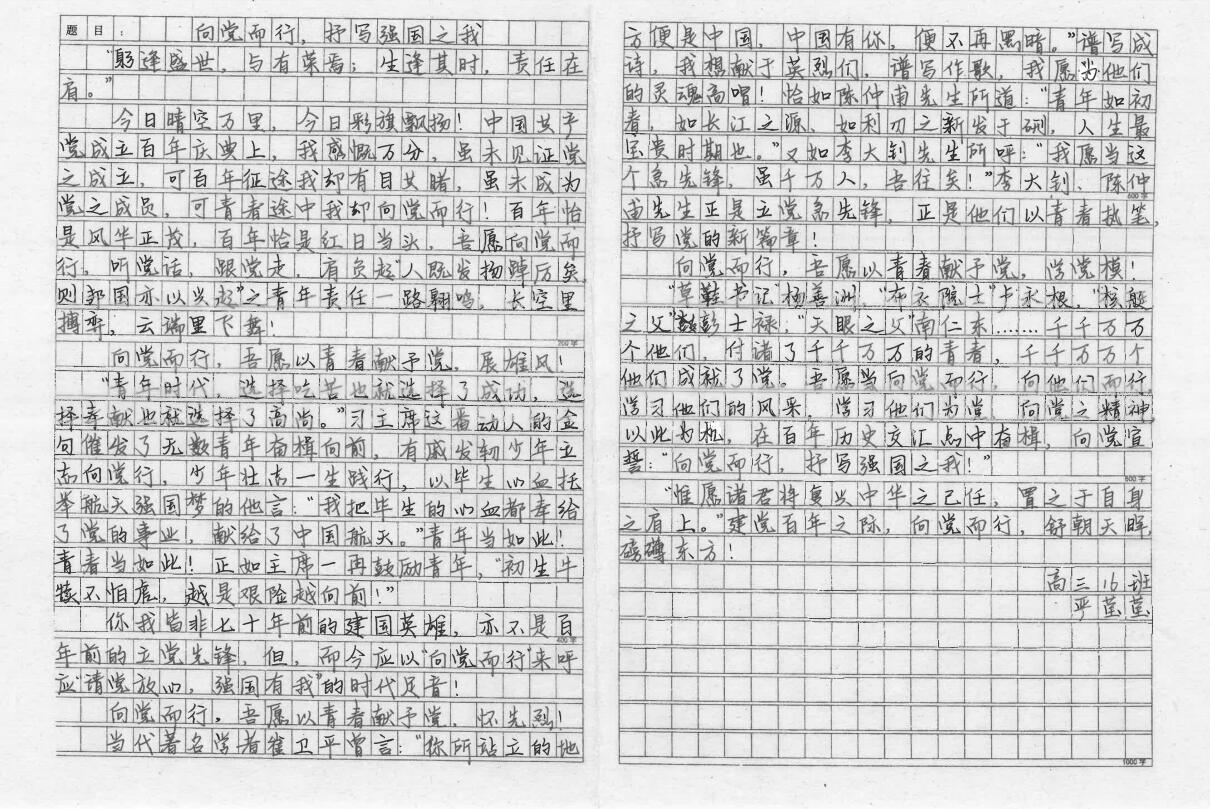 题目： 向党而行，抒写强国之我
“躬逢盛世，与有荣焉；生逢其时，责任在
肩。”
今日晴空万里，今日彩旗飘扬！中国共产
党成立百年庆典上，我感慨万分，虽未见证党
之成立，可百年征途我却有目共睹，虽未成为
党之成员，可青春途中我却向党而行！百年恰
是风华正茂，百年恰是红日当头，吾愿向党而
行，听党话，跟党走，肩负起“人既发扬踔厉矣，
则邦国亦以兴起”之青年责任一路翱鸣，长空里
搏弈，云端里飞舞！
200字
向党而行，吾愿以青春献予党，展雄风！
“青年时代，选择吃苦也就选择了成功，选
择奉献也就选择了高尚。”习主席这番动人的金
句催发了无数青年奋楫向前，有戚发轫少年立
志向党行，少年壮志一生践行，以毕生心血托
举航天强国梦的他言：“我把毕生的心血都奉给
了党的事业，献给了中国航天。”青年当如此！
青春当如此！正如主席一再鼓励青年，“初生牛
犊不怕虎，越是艰险越向前！”
你我皆非七十年前的建国英雄，亦不是百
400字
年前的立党先锋，但，而今应以“向党而行”来呼
应“请党放心，强国有我”的时代足音！
向党而行，吾愿以青春献予党，怀先烈！
当代著名学者崔卫平曾言：“你所站立的地
方便是中国，中国有你，便不再黑暗。”谱写成
诗，我想献于英烈们，谱写作歌，我愿为他们
的灵魂高唱！恰如陈仲甫先生所道：“青年如初
春，如长江之源，如利刃之新发于硎，人生最
宝贵时期也。”又如李大钊先生所呼：“我愿当这
个急先锋，虽千万人，吾往矣！”李大钊、陈仲
600字
甫先生正是立党急先锋，正是他们以青春执笔，
抒写党的新篇章！
向党而行，吾愿以青春献予党，学党模！
“草鞋书记”杨善洲，“布衣院士”卢永根，“核艇
之父”彭士禄，“天眼之父”南仁东……千千万万
个他们，付诸了千千万万的青春，千千万万个
他们成就了党。吾愿当向党而行，向他们而行，
学习他们的风采，学习他们为党、向党之精神，
以此为机，在百年历史交汇点中奋楫，向党宣
誓：“向党而行，抒写强国之我！”
800字
“惟愿诸君将复兴中华之己任，置之于自身
之肩上。”建党百年之际，向党而行，舒朝天晖，
磅礴东方！
高三16班
严莹莹
1000字